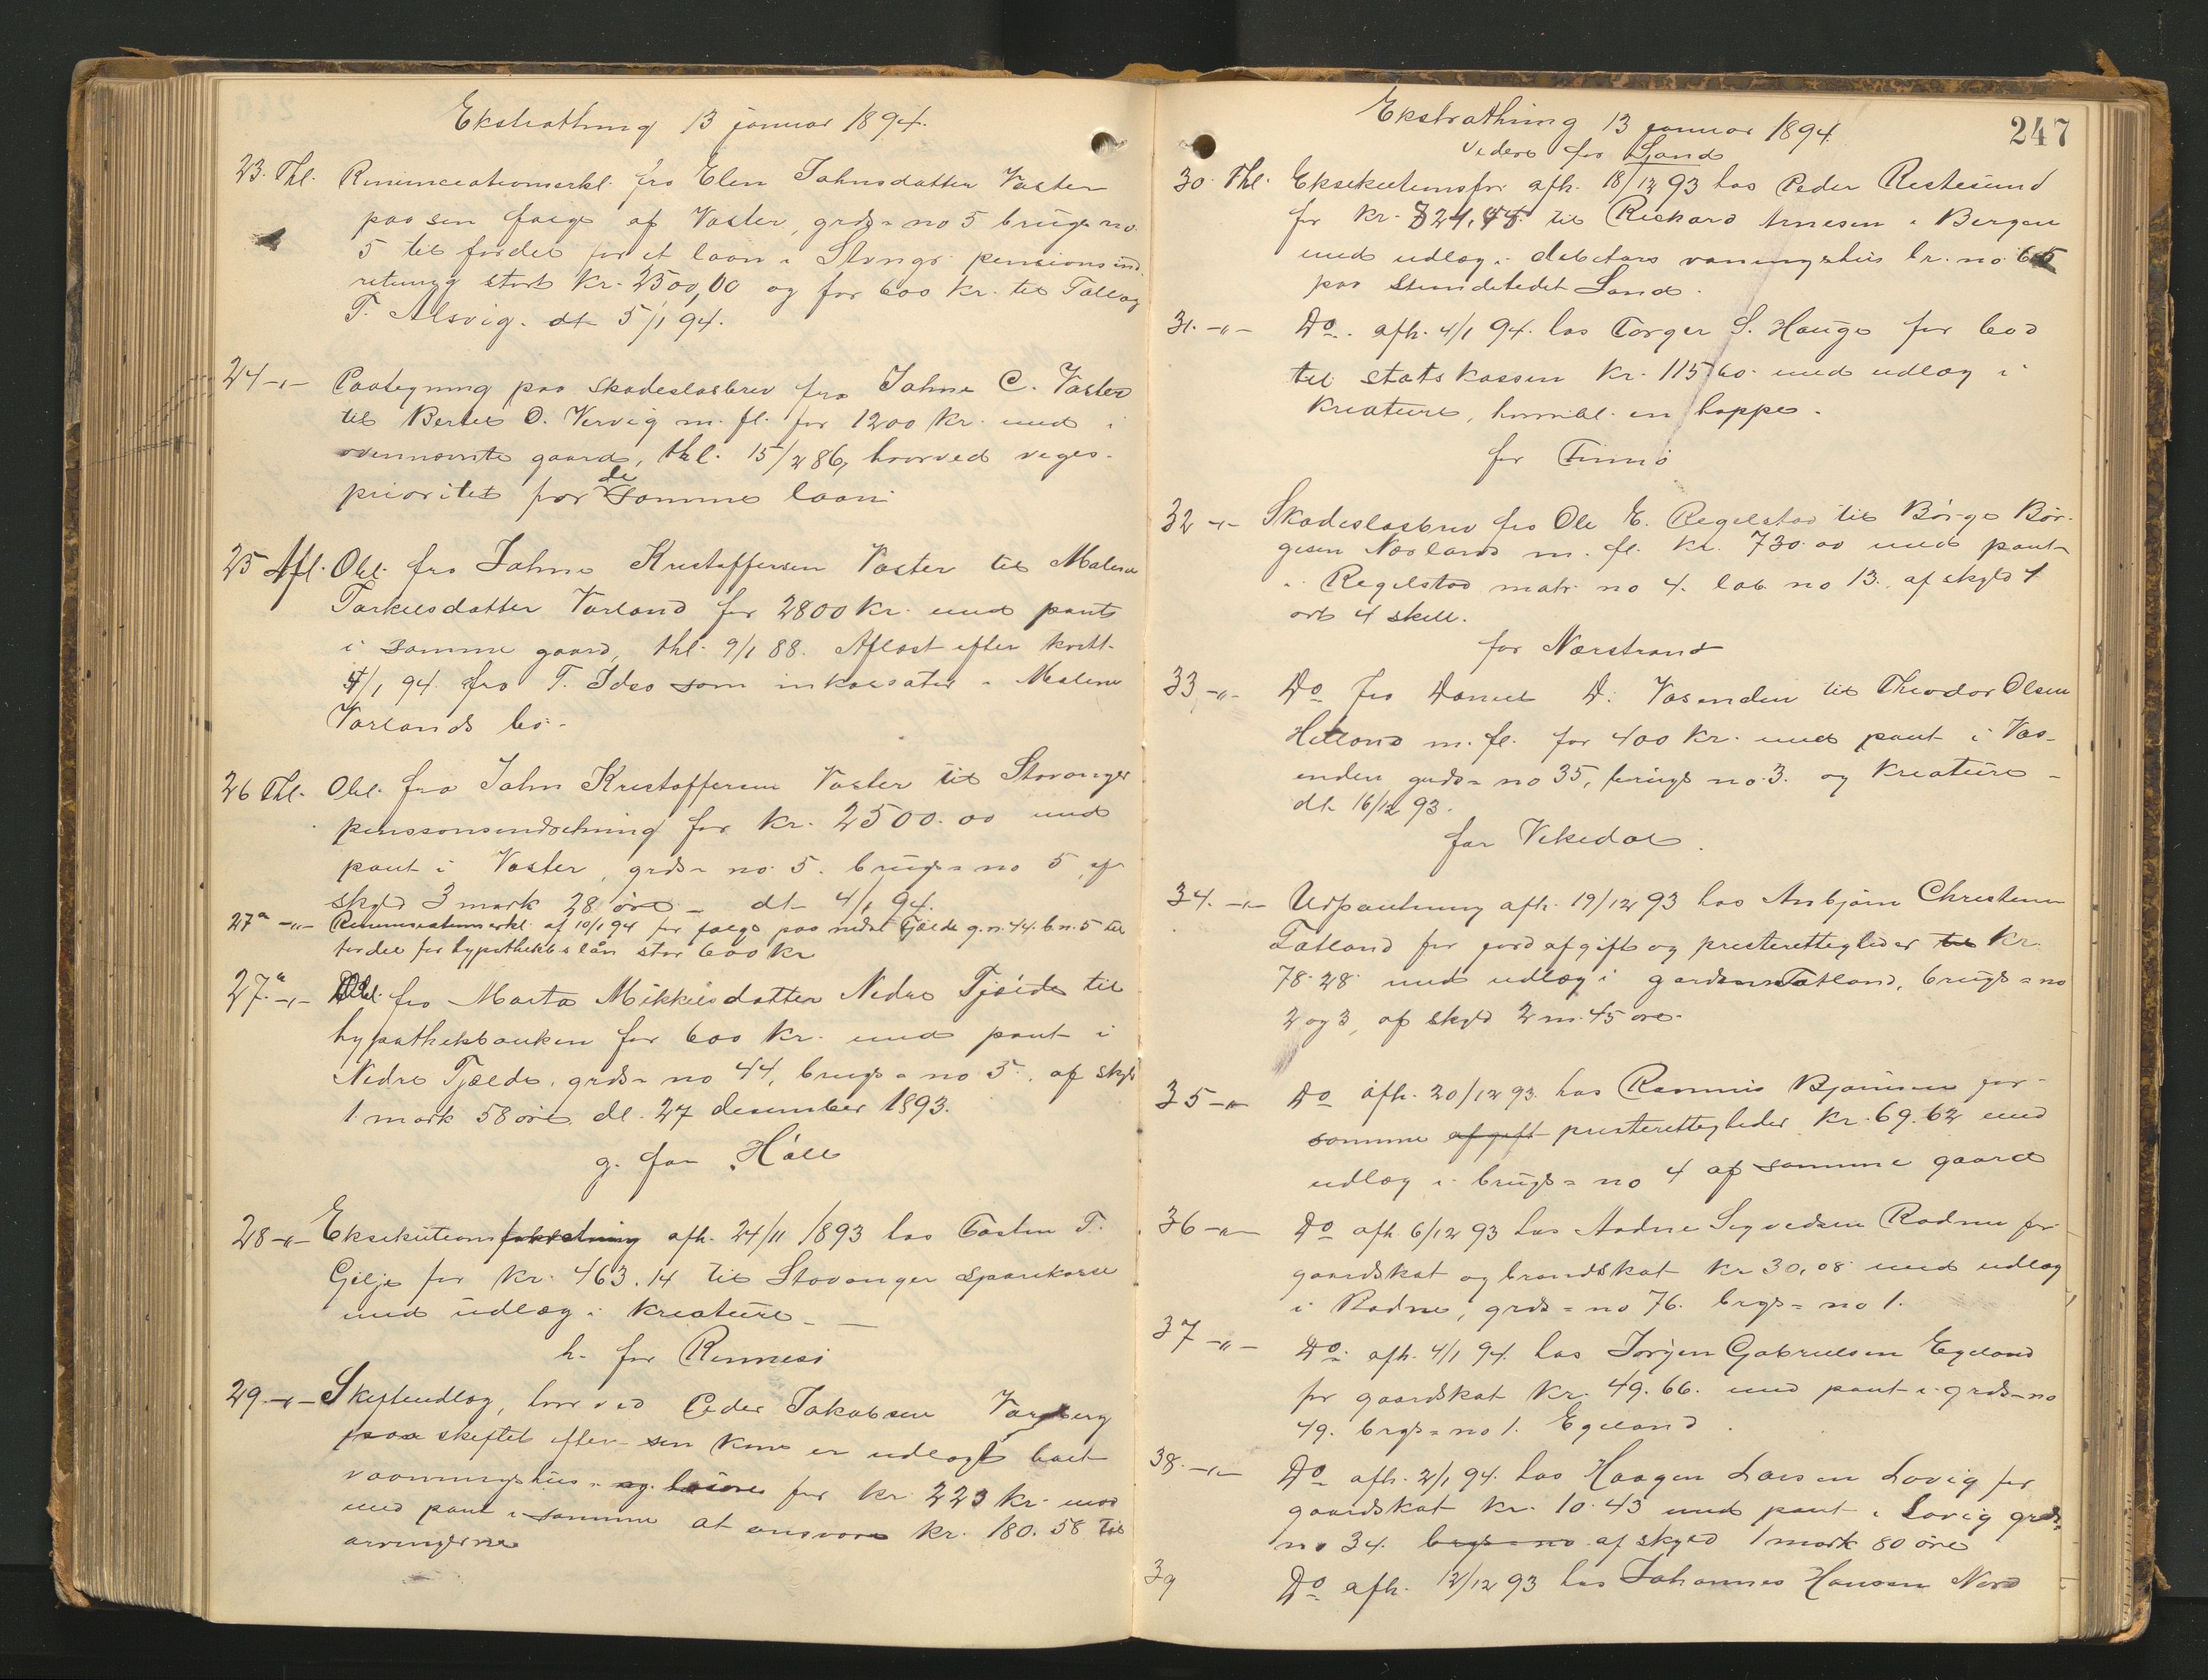 Ekstrathing 13 januar 1894.
23. Thl. Renunciationserkl. fra Elen Jahnsdatter Vaster
paa sin folge af Vaster, grds= no 5 brugs no
5 til fordel for et laan i Stvngr pensionsind.
retning stort kr. 2500,00 og for 600 kr. til Tallag
T. Alsvig. dt 5/1 94.
24 -"- Paategning paa skadeslosbrev fra Jahne C. Vaster
til Bertel O. Vervig m. fl. for 1200 kr. med i
ovennævnte gaard, thl. 15/2 86, hvorved viges
prioritet for de samme laan
25 Afl. Obl. fra Jahne Kristoffersen Vaster til Malene
Tarkelsdatter Varland for 2800 kr. med pant
i samme gaard, thl. 9/1 88. Aflæst efter kvitt.
4/1 94. fra T. Idso som inkassator i Malene
Varlands bo.
26 Thl. Obl. fra Jahn Kristoffersen Vaster til Stavanger
pensionsindretning for kr. 2500.00 med
pant i Vaster, grds= no 5. brugs= no 5, af
skyld 3 mark 28 øre _ dt 4/1 94.
27a -"- Renunciationserkl. af 10/1 94 for folge paa nedre Tjælde g.n. 44. b.n. 5 til
fordel for hypothekb.s lån stor 600 kr
27.a -"- Obl. fra Marta Mikkelsdatter Nedre Tjælde til
hypothekbanken for 600 kr. med pant i
Nedre Tjælde, grds= no 44, brugs= no 5. af skyld
1 mark 58 øre dt. 27 desember 1893.
g. for Håle
28 -"- Eksekutionsforretning afh. 24/11 1893 hos Tosten T.
Gilje for kr. 463.14 til Stavanger Sparekasse
med udlæg i kreature _ _
h. for Rennesø
29. -"- Skifteudlæg, hvorved Peder Jakobsen Vargberg
paa skiftet efter sin kone er udlagt baet
vaaningshus og løsøre for kr. 223 kr. mod
med pant i samme at ansvare kr. 180.58 til
arvingerne
Ekstrathing 13 januar 1894.
247
videre for Sand
30. Thl. Eksekutionsfor. afh. 18/12 93 hos Peder Restesund
for kr. 824,45 til Rickard Arnesen i Bergen
med udlæg i debitors vaningshus br. no 65
paa strandstedet Sand.
31. -"- Do. afh. 4/1 94. hos Torger S. Hauge for bod
til statskassen kr. 115.60 med udlæg i
kreature, hvoribl. en hoppe.
for Finnø
32 -"- Skadeslosbrev fra Ole E. Regelstad til Børge Bør-
gesen Næsland m. fl. kr. 730.00 med pant
i Regelstad matr. no 4. lab. no 13. af skyld 1
ort 4 skill.
for Nærstrand
33 -"- Do fra Daniel D. Vasenden til Theodor Olsen
Hetland m. fl. for 400 kr. med pant i Vas-
enden grds= no 35, brugs no. 3. og kreature -
dt. 16/12 93.
for Vikedal.
34. -"- Udpantning afh. 19/12 93 hos Anbjørn Christensen
Tatland for jordafgift og presterettigheder til kr.
78.28 med udlæg i garden Tatland, brugs= no
2 og 3, af skyld 2 m. 45 øre.
35 -"- Do afh. 20/12 93. hos Rasmus Bjørnsen for
samme afgift presterettigheder kr. 69.62 med
udlæg i brugs= no 4 af samme gaard
36 -"- Do afh 6/12 93 hos Aadne Sigvedsen Radne for
gaardskat og brandskat kr 30,08 med udlæg
i Radne, grds= no 76. brgs= no 1.
37 -"- Do. afh. 4/1 94. hos Jørgen Gabrielsen Egeland
for gaardskat kr. 49.66. med pant i grds= no
49. brgs= no 1. Egeland.
38. -"- Do afh. 2/1 94. hos Haagen Larsen Lovig for
gaardskat kr. 10.43 med pant i Lovig grds=
no 34. brgs= no af skyld 1 mark 80 øre
39 Do afh. 12/12 93 hos Johannes Hansen Nord